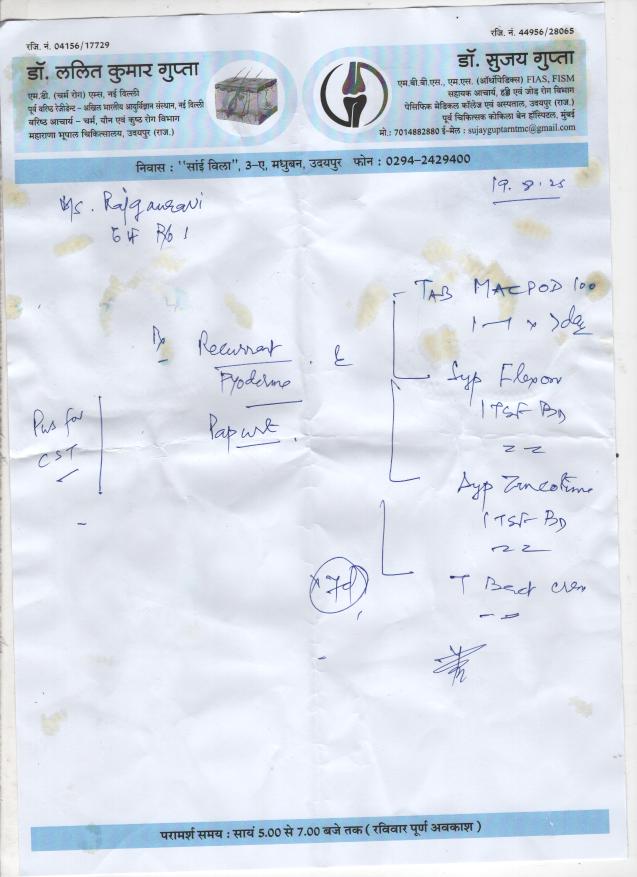 रजि. नं. 04156/17729
डॉ. ललित कुमार गुप्ता
एम.डी. (चर्म रोग) एम्स, नई दिल्ली
पूर्व वरिष्ठ रेजीडेन्ट - अखिल भारतीय आयुर्विज्ञान संस्थान, नई दिल्ली
वरिष्ठ आचार्य - चर्म, यौन एवं कुष्ठ रोग विभाग
महाराणा भूपाल चिकित्सालय, उदयपुर (राज.)
रजि. नं. 44956/28065
डॉ. सुजय गुप्ता
एम.बी.बी.एस., एम.एस. (ऑर्थोपेडिक्स) FIAS, FISM
सहायक आचार्य, हड्डी एवं जोड़ रोग विभाग
पेसिफिक मेडिकल कॉलेज एवं अस्पताल, उदयपुर (राज.)
पूर्व चिकित्सक कोकिला बेन हॉस्पिटल, मुंबई
मो.: 7014882880 ई-मेल : sujayguptarntmc@gmail.com
निवास : "सांई विला", 3-ए, मधुबन, उदयपुर फोन : 0294-2429400
19.8.25
Recurrent
Pyoderma
Pus for
CST
TAB MACPOD 100
Syp Flexon
1 TSF BD
Syp
1 TSF BD
T Bact
परामर्श समय : सायं 5.00 से 7.00 बजे तक ( रविवार पूर्ण अवकाश )